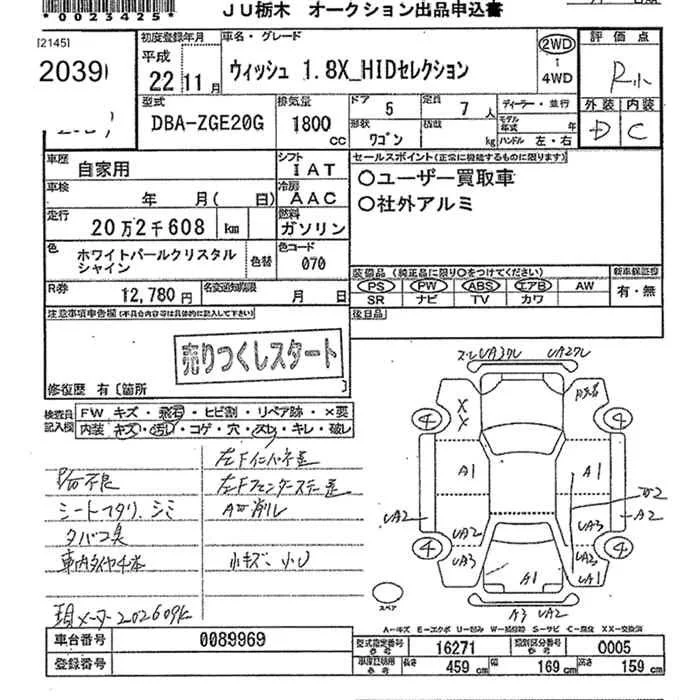 *0023425*
JU栃木 オークション出品申込書
[2145]
2039
初度登録年月
平成
22 11月
車名・グレード
ウィッシュ 1.8X_HIDセレクション
2WD
4WD
評価点
R小
外装 内装
D C
型式
DBA-ZGE20G
排気量
1800 cc
ドア 5
定員 7人
形状 ワゴン
積載 kg
ディーラー・並行
モデル年式 年
ハンドル 左・右
車歴
自家用
シフト
IAT
車検
年 月( 日)
冷房
AAC
走行
20万2千608 km
燃料
ガソリン
色
ホワイトパールクリスタル
シャイン
色替
色コード
070
R券
12,780円
名変通知期限
月 日
セールスポイント(正常に機能するものに限ります)
○ユーザー買取車
○社外アルミ
装備品(純正品に限り○をつけてください)
PS PW ABS エアB AW
SR ナビ TV カワ
新車保証書
有・無
後日品
注意事項申告欄(不具合内容等は具体的に記入して下さい)
売りつくしスタート
修復歴 有〔箇所 〕
検査員
記入欄
FW キズ・飛石・ヒビ割・リペア跡・×要
内装 キズ・汚レ・コゲ・穴・スレ・キレ・破レ
シートヘタリ、シミ
タバコ臭
車内タイヤ4本
現メーター202609k
左Fインパネ歪
左Fフェンダーステー歪
小キズ、小U
UA3クレ UA2クレ
X
X
4 4
A1 A1
UA2 UA2 UA3 A2
4 4
UA3 UA3
A1 UA1
A3 UA2
スペア
A-キズ E-エクボ U-凹み W-補修跡 S-サビ C-腐食 XX-交換済
車台番号
0089969
登録番号
型式指定番号
参考
16271
類別区分番号
参考
0005
車庫証明用
参考
長さ 459 cm
幅 169 cm
高さ 159 cm